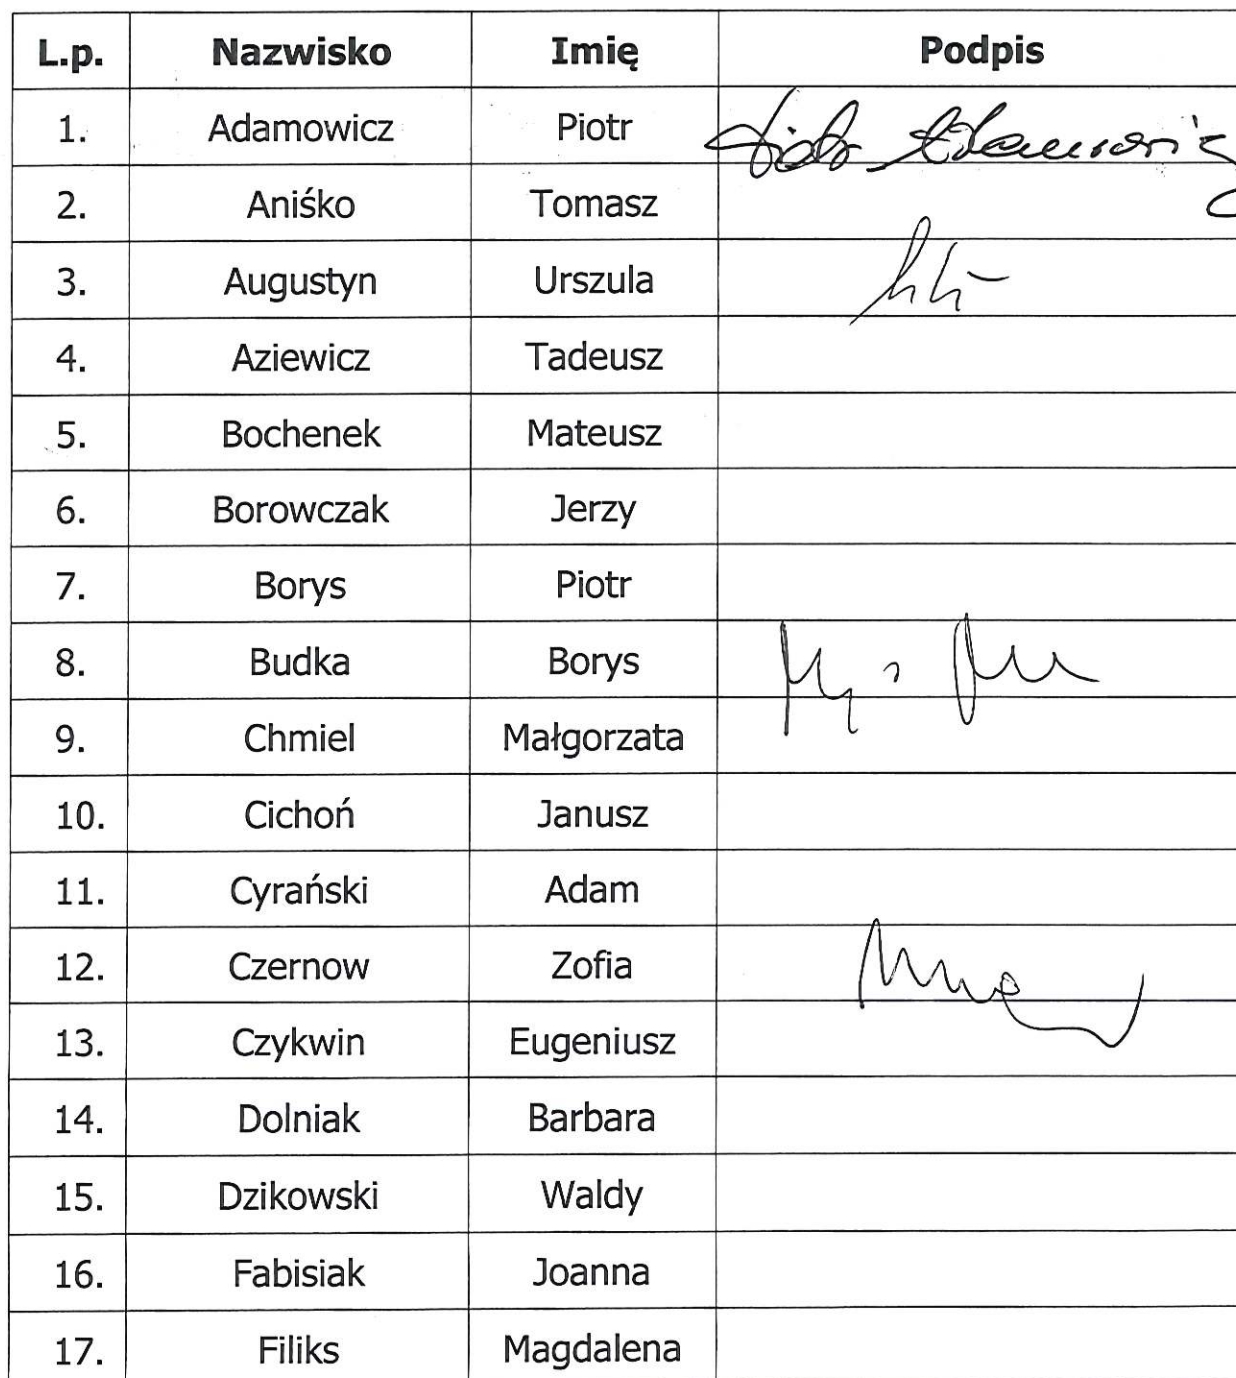 L.p. Nazwisko Imię Podpis
1. Adamowicz Piotr Piotr Adamowicz
2. Aniśko Tomasz
3. Augustyn Urszula
4. Aziewicz Tadeusz
5. Bochenek Mateusz
6. Borowczak Jerzy
7. Borys Piotr
8. Budka Borys
9. Chmiel Małgorzata
10. Cichoń Janusz
11. Cyrański Adam
12. Czernow Zofia
13. Czykwin Eugeniusz
14. Dolniak Barbara
15. Dzikowski Waldy
16. Fabisiak Joanna
17. Filiks Magdalena